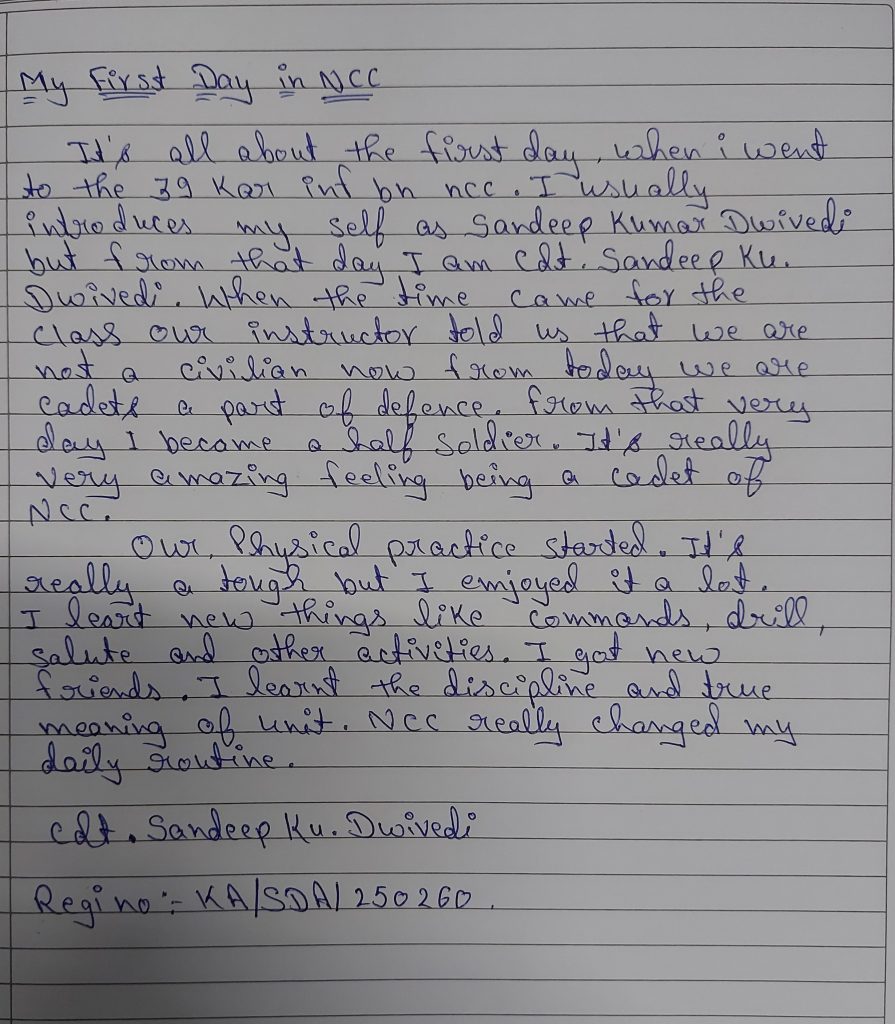 My First Day in NCC
It's all about the first day, when i went
to the 39 Kar inf bn ncc. I usually
introduces my self as Sandeep Kumar Dwivedi
but from that day I am Cdt. Sandeep Ku.
Dwivedi. When the time came for the
class our instructor told us that we are
not a civilian now from today we are
cadets a part of defence. from that very
day I become a half soldier. It's really
very amazing feeling being a cadet of
NCC.
Our, Physical practice started. It's
really a tough but I emjoyed it a lot.
I leart new things like commands, drill,
salute and other activities. I got new
friends. I learnt the discipline and true
meaning of unit. NCC really changed my
daily routine.
cdt. Sandeep Ku. Dwivedi
Regi no :- KA/SDA/250260.